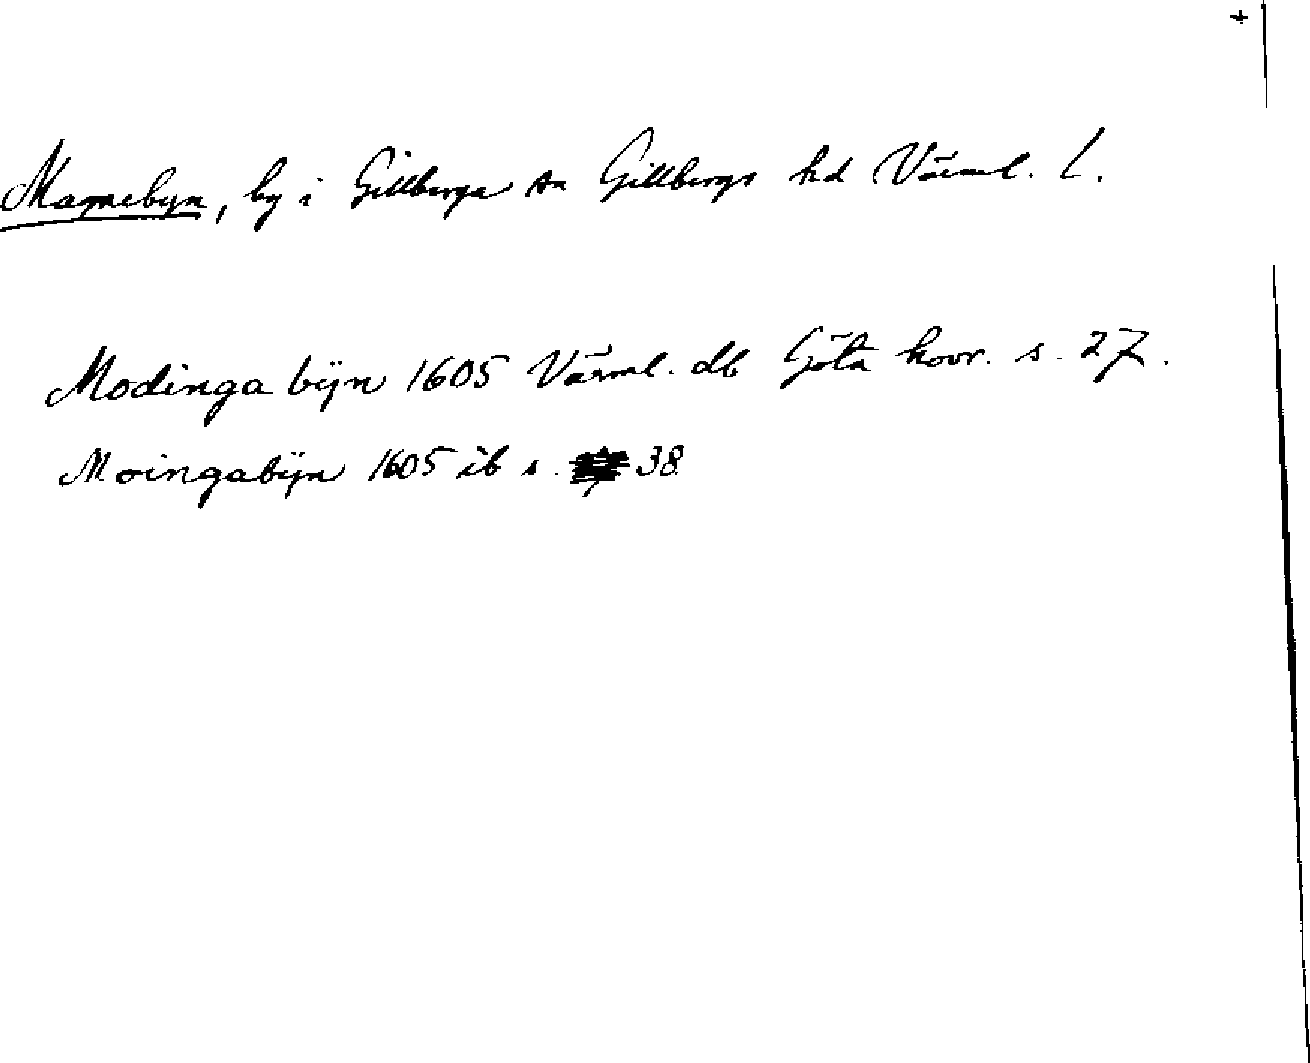 +
Magnebyn, by i Gillberga sn Gillbergs hd Värml. l.
Modinga bÿn 1605 Värml. db Göta hovr. s. 27.
Moingabÿn 1605 ib s. 38